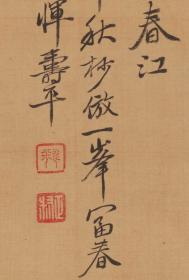 春江
秋杪倣一峯富春
惲壽平